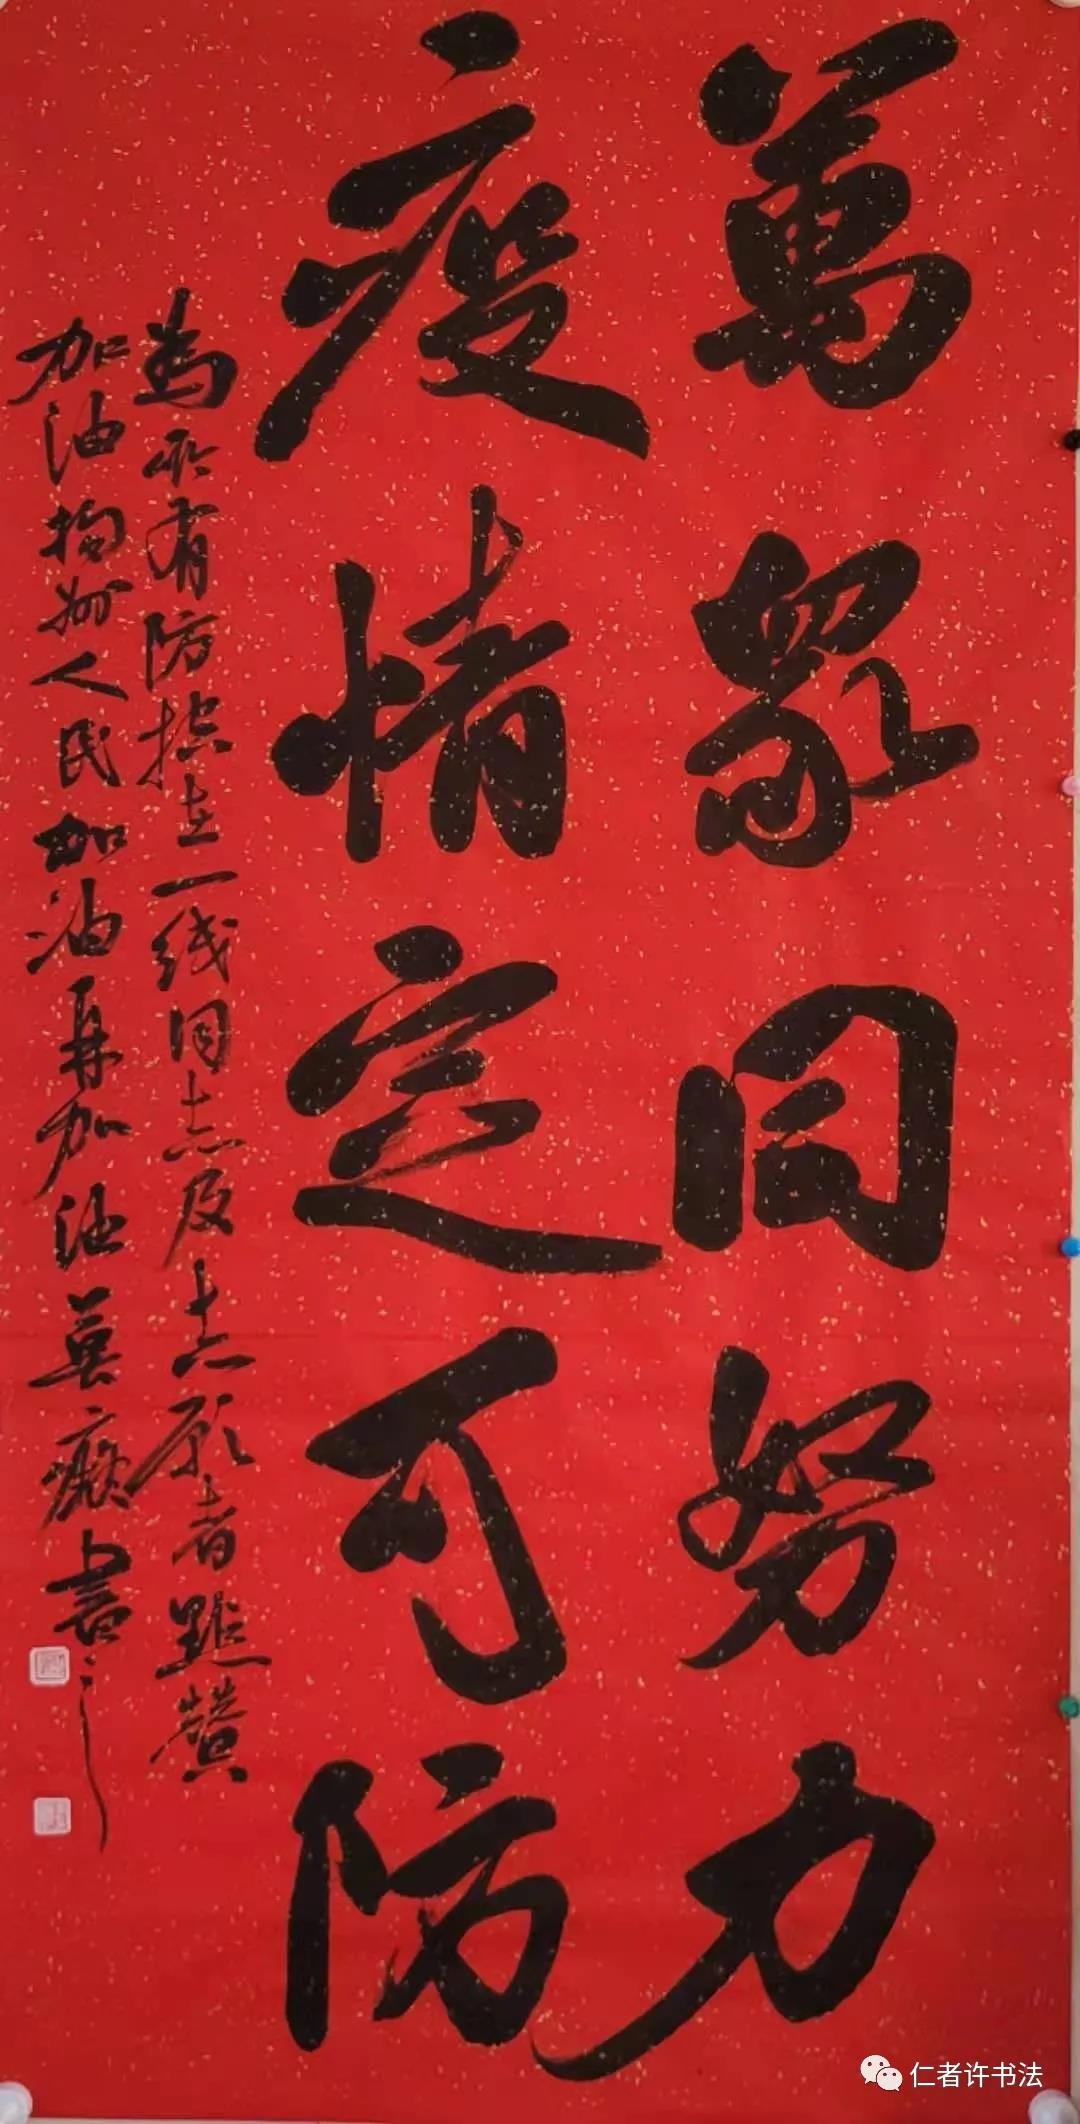 萬眾同努力
疫情定可防
為所有防控在一线同志及志愿者點赞
加油揚州人民加油再加油莫癡書
仁者许书法